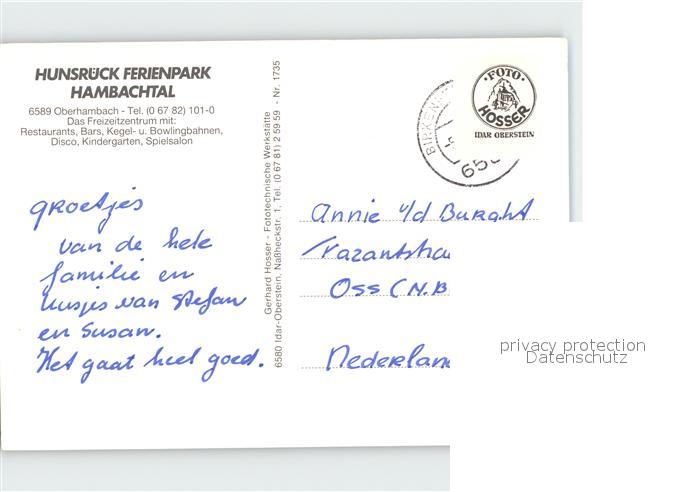 HUNSRÜCK FERIENPARK
HAMBACHTAL
6589 Oberhambach - Tel. (0 67 82) 101-0
Das Freizeitzentrum mit:
Restaurants, Bars, Kegel- u. Bowlingbahnen,
Disco, Kindergarten, Spielsalon
groetjes
van de hele
familie en
kusjes van Stefan
en Susan.
Het gaat heel goed.
Gerhard Hosser - Fototechnische Werkstätte
6580 Idar-Oberstein, Naßheckstr. 1, Tel. (0 67 81) 2 59 59 - Nr. 1735
BIRKEN
65
·FOTO·
HOSSER
IDAR OBERSTEIN
Annie v/d Burght
Oss (N.B
Nederlan
privacy protection
Datenschutz